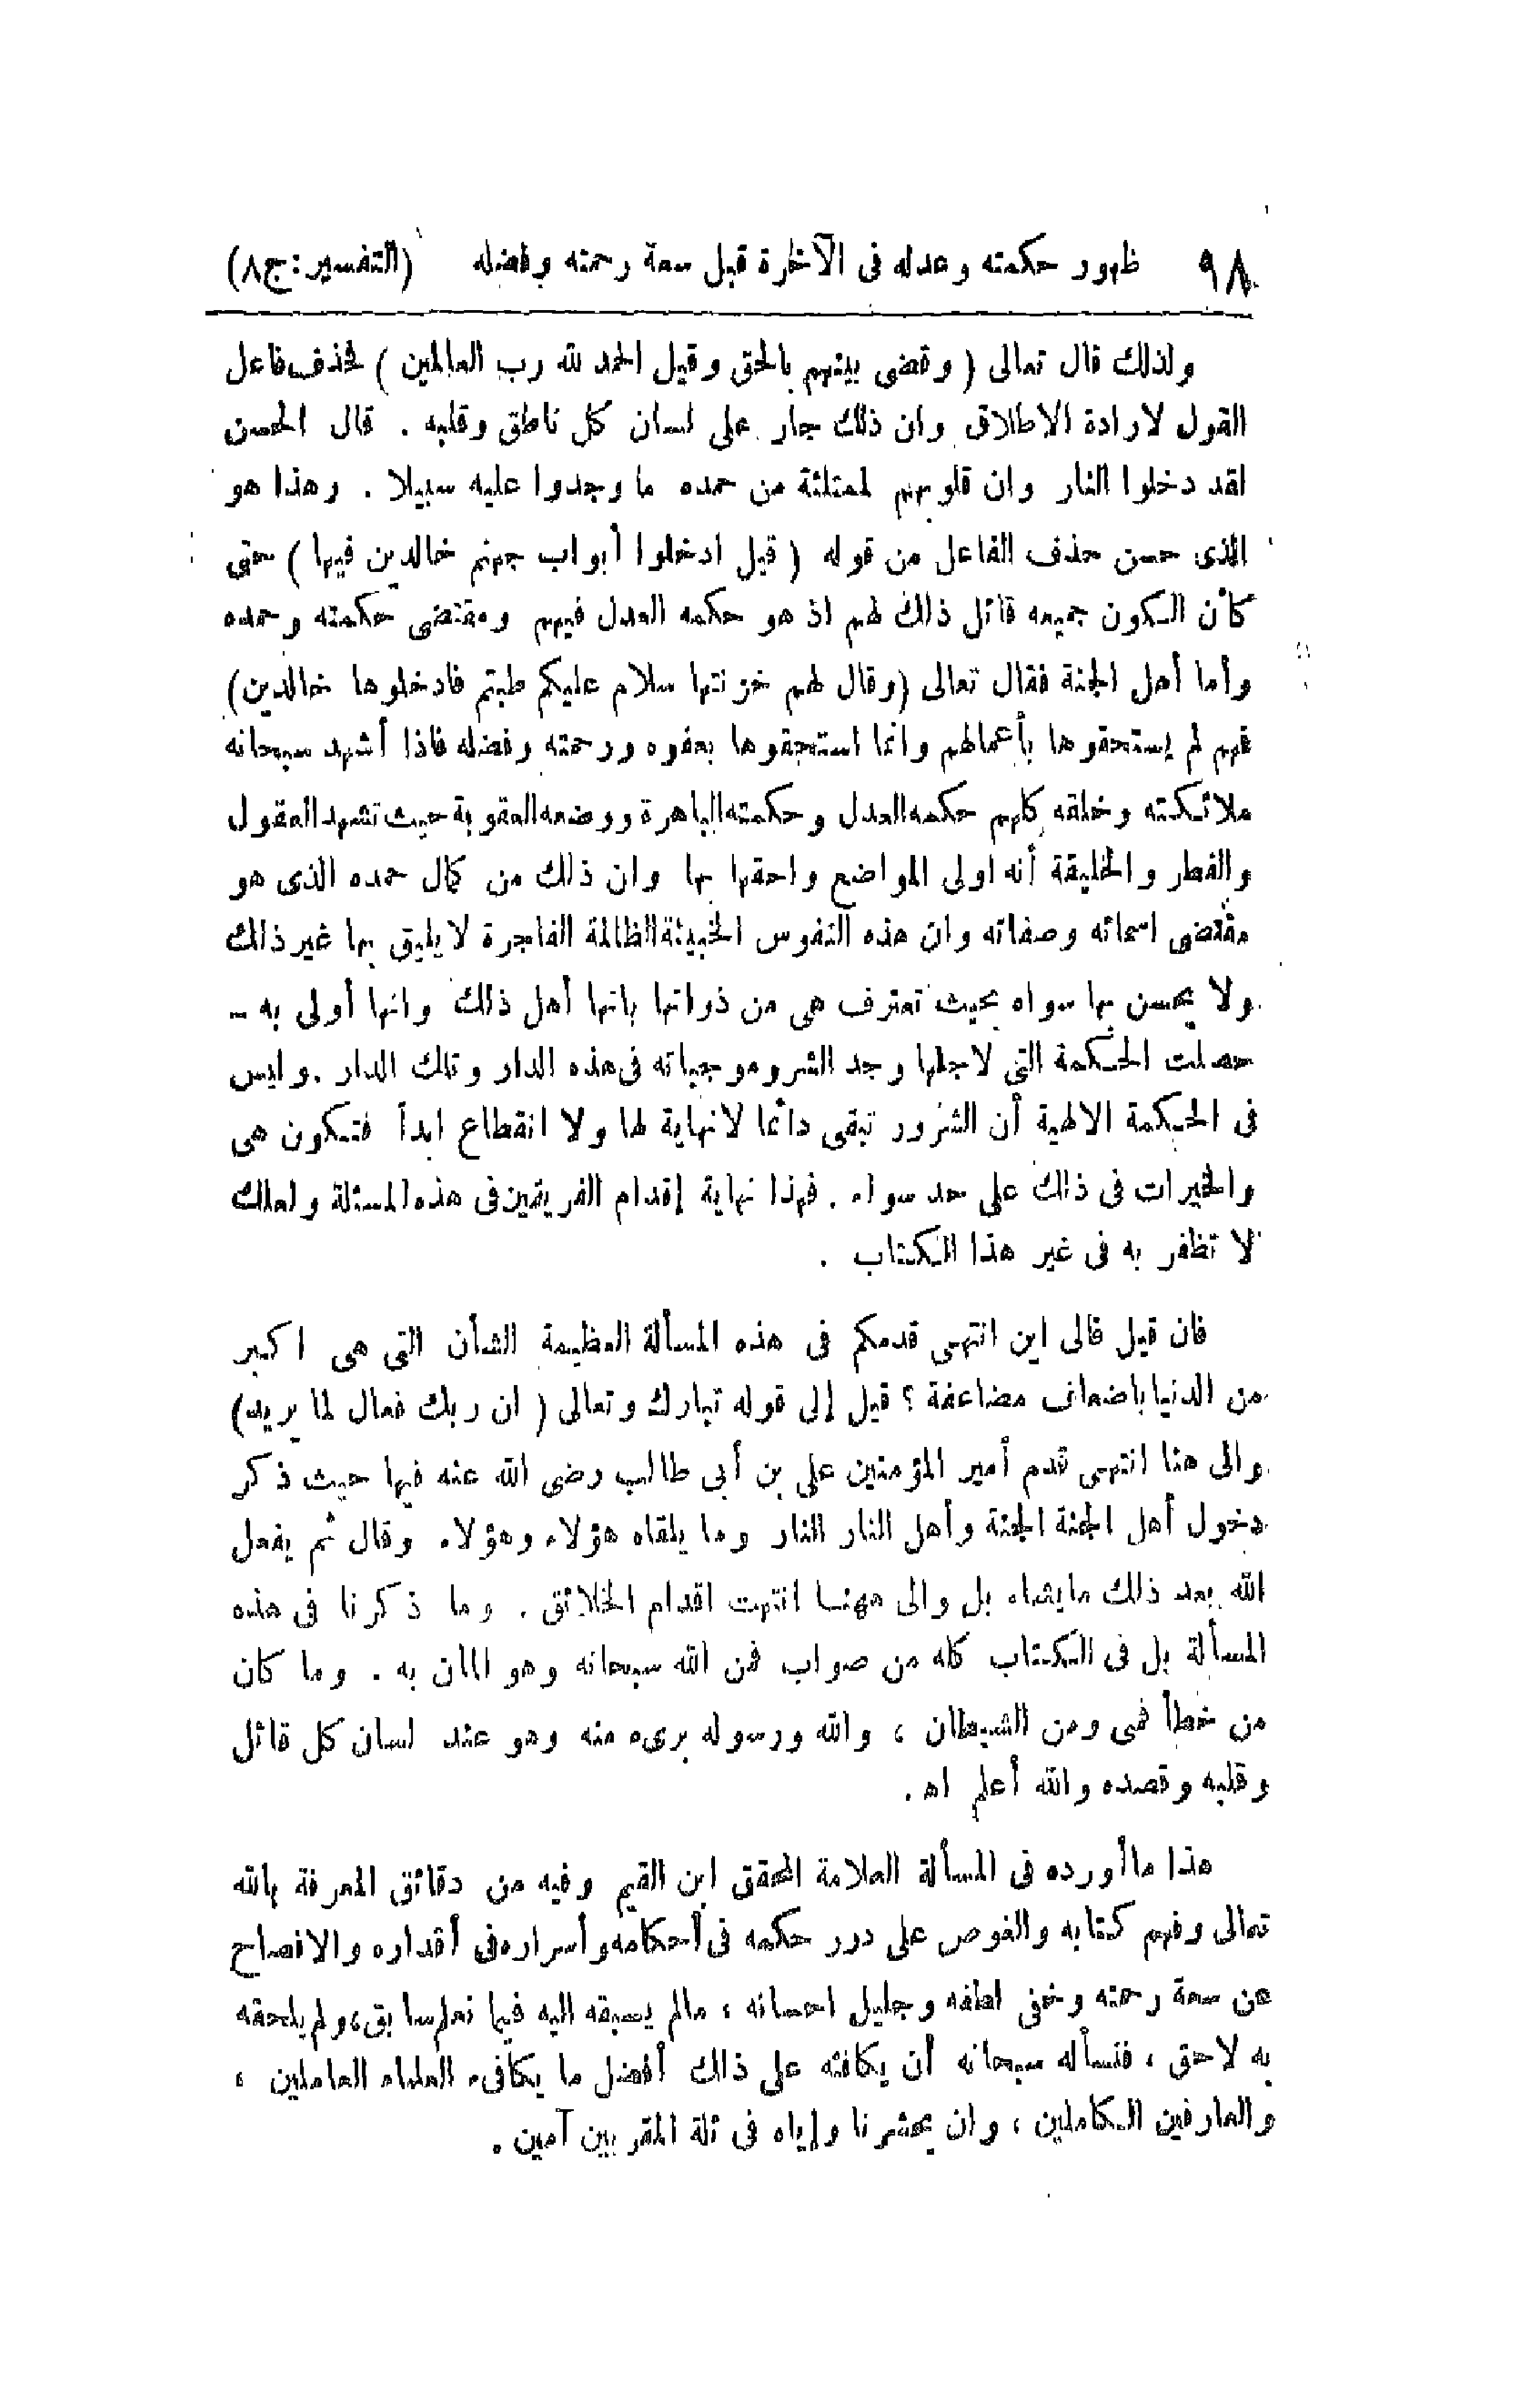 ٩٨ ظهور حكمته وعدله فى الآخرة قبل سعة رحمته وفضله (التفسير: ج ٨)
ولذلك قال تعالى ( وقضى بينهم بالحق وقيل الحمد لله رب العالمين ) فحذف فاعل
القول لارادة الاطلاق وان ذلك جار على لسان كل ناطق وقلبه . قال الحسن
لقد دخلوا النار وان قلوبهم لممتلئة من حمده ما وجدوا عليه سبيلا . وهذا هو
الذى حسن حذف الفاعل من قوله ( قيل ادخلوا أبواب جهنم خالدين فيها ) حتى
كأن الكون جميعه قائل ذلك لهم اذ هو حكمه العدل فيهم ومقتضى حكمته وحمده
وأما أهل الجنة فقال تعالى (وقال لهم خزنتها سلام عليكم طبتم فادخلوها خالدين)
فهم لم يستحقوها بأعمالهم وانما استحقوها بعفوه ورحمته وفضله فاذا أشهد سبحانه
ملائكته وخلقه كلهم حكمه العدل وحكمته الباهرة ووضعه العقوبة حيث تشهد العقول
والفطر والخليقة أنه اولى المواضع واحقها بها وان ذلك من كمال حمده الذى هو
مقتضى اسمائه وصفاته وان هذه النفوس الخبيثة الظالمة الفاجرة لا يليق بها غير ذلك
ولا يحسن بها سواه بحيث تعترف هى من ذواتها بانها أهل ذلك وانها أولى به -
حصلت الحكمة التى لاجلها وجد الشر وموجباته فى هذه الدار وتلك الدار . وليس
فى الحكمة الالهية أن الشرور تبقى دائما لا نهاية لها ولا انقطاع ابداً فتكون هى
والخيرات فى ذلك على حد سواء . فهذا نهاية إقدام الفريقين فى هذه المسئلة ولعلك
لا تظفر به فى غير هذا الكتاب .
فان قيل فالى اين انتهى قدمكم فى هذه المسألة العظيمة الشأن التى هى اكبر
من الدنيا باضعاف مضاعفة ؟ قيل إلى قوله تبارك وتعالى ( ان ربك فعال لما يريد)
والى هنا انتهى قدم أمير المؤمنين على بن أبى طالب رضى الله عنه فيها حيث ذكر
دخول أهل الجنة الجنة وأهل النار النار وما يلقاه هؤلاء وهؤلاء وقال ثم يفعل
الله بعد ذلك ما يشاء بل والى ههنا انتهت اقدام الخلائق . وما ذكرنا فى هذه
المسألة بل فى الكتاب كله من صواب فمن الله سبحانه وهو المان به . وما كان
من خطأ فمنى ومن الشيطان ، والله ورسوله برىء منه وهو عند لسان كل قائل
وقلبه وقصده والله أعلم اه .
هذا ما أورده فى المسألة العلامة المحقق ابن القيم وفيه من دقائق المعرفة بالله
تعالى وفهم كتابه والغوص على درر حكمه فى أحكامه وأسراره فى أقداره والافصاح
عن سعة رحمته وخفى لطفه وجليل احسانه ، مالم يسبقه اليه فيما نعلم سابق ، ولم يلحقه
به لاحق ، فنسأله سبحانه أن يكافئه على ذلك أفضل ما يكافىء العلماء العاملين ،
والعارفين الكاملين ، وان يحشرنا وإياه فى ثلة المقربين آمين .